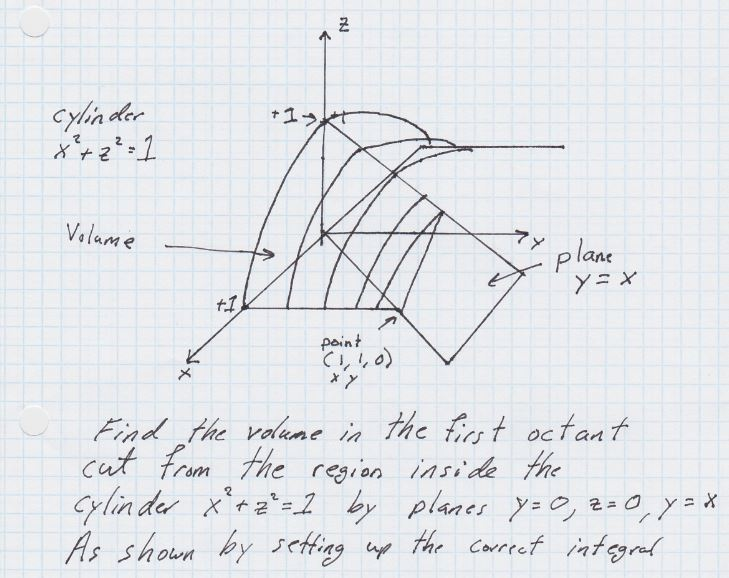 z
+1 → +1
cylinder
x² + z² = 1
Volume
y
plane
y = x
+1
point
(1, 1, 0)
x y
x
Find the volume in the first octant
cut from the region inside the
cylinder x² + z² = 1 by planes y = 0, z = 0, y = x
As shown by setting up the correct integral